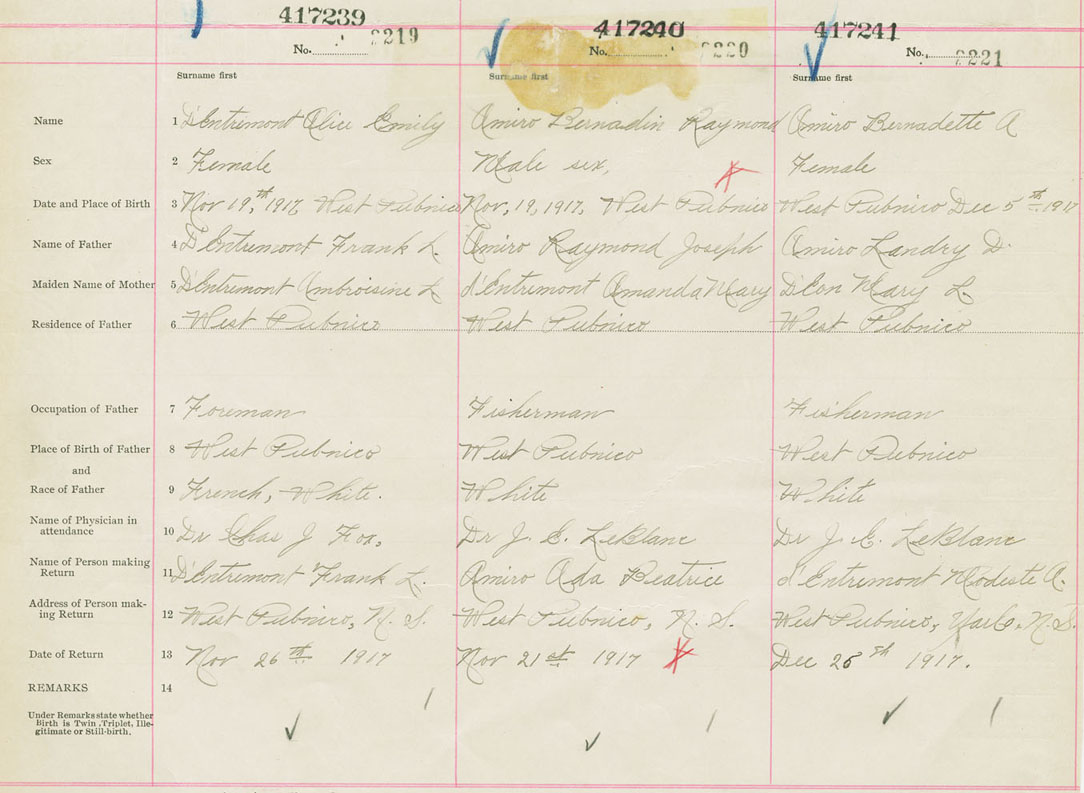 417239 417240 417241
No. 2219 No. 2220 No. 2221
Surname first Surname first Surname first
Name 1 D'Entremont Alice Emily Amiro Bernadin Raymond Amiro Bernadette A
Sex 2 Female Male sex, Female
Date and Place of Birth 3 Nov 19,th 1917, West Pubnico Nov, 19, 1917, West Pubnico West Pubnico Dec 5th 1917
Name of Father 4 D'Entremont Frank L. Amiro Raymond Joseph Amiro Landry D.
Maiden Name of Mother 5 D'Entremont Ambroisine L d'Entremont Amanda Mary D'Eon Mary L
Residence of Father 6 West Pubnico West Pubnico West Pubnico
Occupation of Father 7 Foreman Fisherman Fisherman
Place of Birth of Father 8 West Pubnico West Pubnico West Pubnico
and
Race of Father 9 French, White. White White
Name of Physician in
attendance 10 Dr Chas J Fox, Dr J. E. LeBlanc Dr J. E. LeBlanc
Name of Person making
Return 11 D'Entremont Frank L. Amiro Ada Beatrice d'Entremont Modeste A.
Address of Person mak-
ing Return 12 West Pubnico, N. S. West Pubnico, N. S. West Pubnico, Yar Co, N.S.
Date of Return 13 Nov 26th 1917 Nov 21st 1917 Dec 26th 1917.
REMARKS 14
Under Remarks state whether
Birth is Twin, Triplet, Ille-
gitimate or Still-birth.